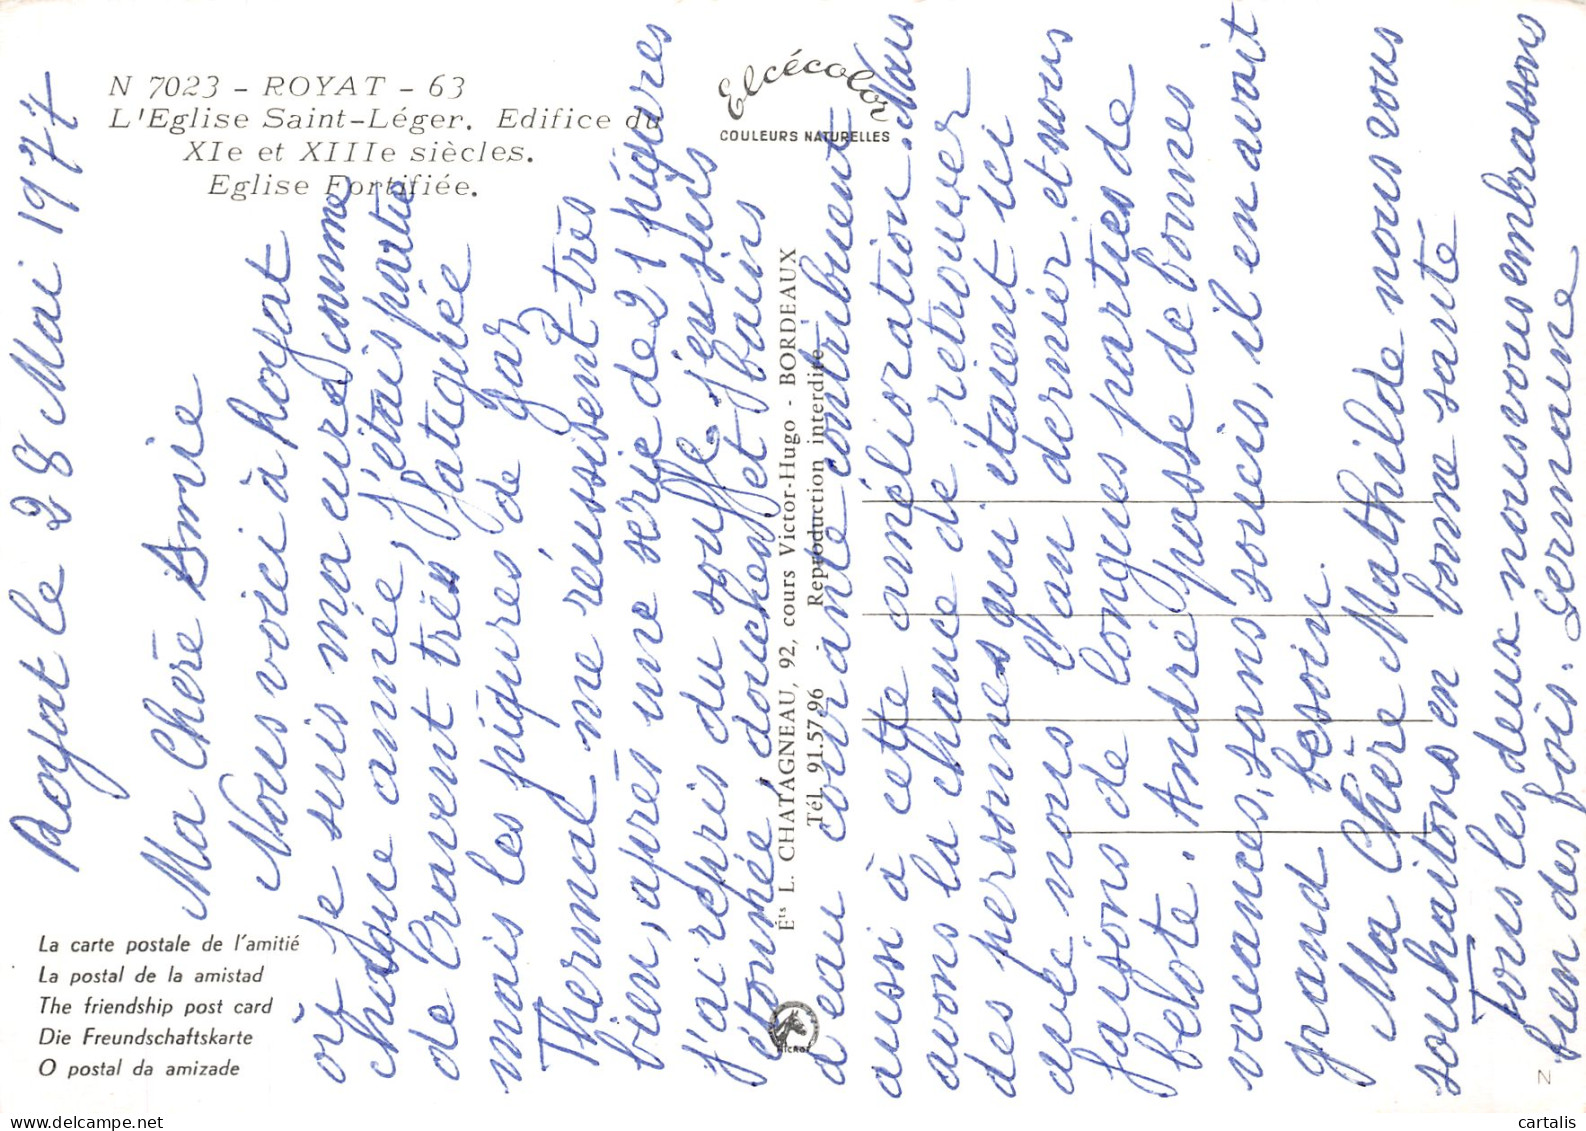 N 7023 - ROYAT - 63
L'Eglise Saint-Léger. Edifice du
XIe et XIIIe siècles.
Eglise Fortifiée.
Elcécolor
COULEURS NATURELLES
Royat le 28 Mai 1977
Ma Chère Amie
Nous voici à Royat
où je suis ma cure comme
chaque année, j'étais partie
de Cravent très fatiguée
mais les piqûres de gaz
Thermal me réussisent très
bien, après une série de 21 piqures
j'ai repris du souffle, j'en suis
étonnée, douches et bains
d'eau courante contribuent
aussi à cette amélioration. Nous
avons la chance de retrouver
des personnes qui étaient ici
avec nous l'an dernier et nous
faisons de longues parties de
belote. André passe de bonnes
vacances, sans soucis, il en avait
grand besoin.
Ma Chère Mathilde nous vous
souhaitons en bonne santé
Tous les deux nous vous embrassons
bien des fois. Germaine
Éts L. CHATAGNEAU, 92, cours Victor-Hugo - BORDEAUX
Tél. 91.57.96 Reproduction interdite
La carte postale de l'amitié
La postal de la amistad
The friendship post card
Die Freundschaftskarte
O postal da amizade
N
cartalis